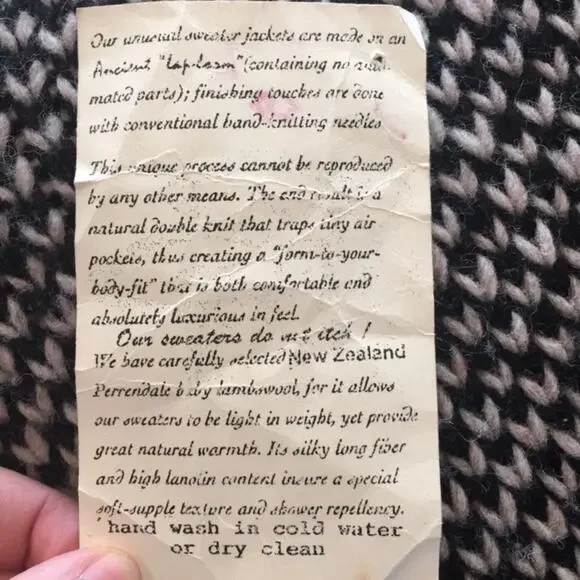 Our unusual sweater jackets are made on an
Ancient "lap-loom" (containing no auto-
mated parts); finishing touches are done
with conventional hand-knitting needles
This unique process cannot be reproduced
by any other means. The end result is a
natural double knit that traps tiny air
pockets, thus creating a "form-to-your-
body-fit" that is both comfortable and
absolutely luxurious in feel.
Our sweaters do not itch!
We have carefully selected New Zealand
Perrendale baby lambswool, for it allows
our sweaters to be light in weight, yet provide
great natural warmth. Its silky long fiber
and high lanolin content insure a special
soft-supple texture and shower repellency.
hand wash in cold water
or dry clean